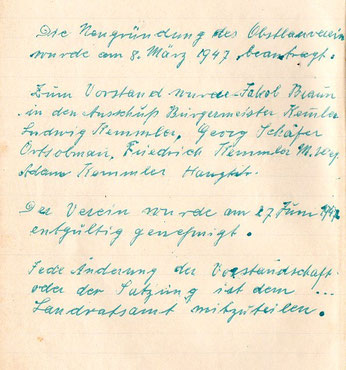 Die Neugründung des Obstbauverein
wurde am 8. März 1947 beantragt.
Zum Vorstand wurde Jakob Braun
in den Ausschuß Bürgermeister Kemmler
Ludwig Kemmler, Georg Schäfer
Ortsobman, Friedrich Kemmler
Adam Kemmler
Der Verein wurde am 27 Juni 1947
entgültig genehmigt.
Jede Änderung der Vorstandschaft
oder der Satzung ist dem ...
Landratsamt mitzuteilen.